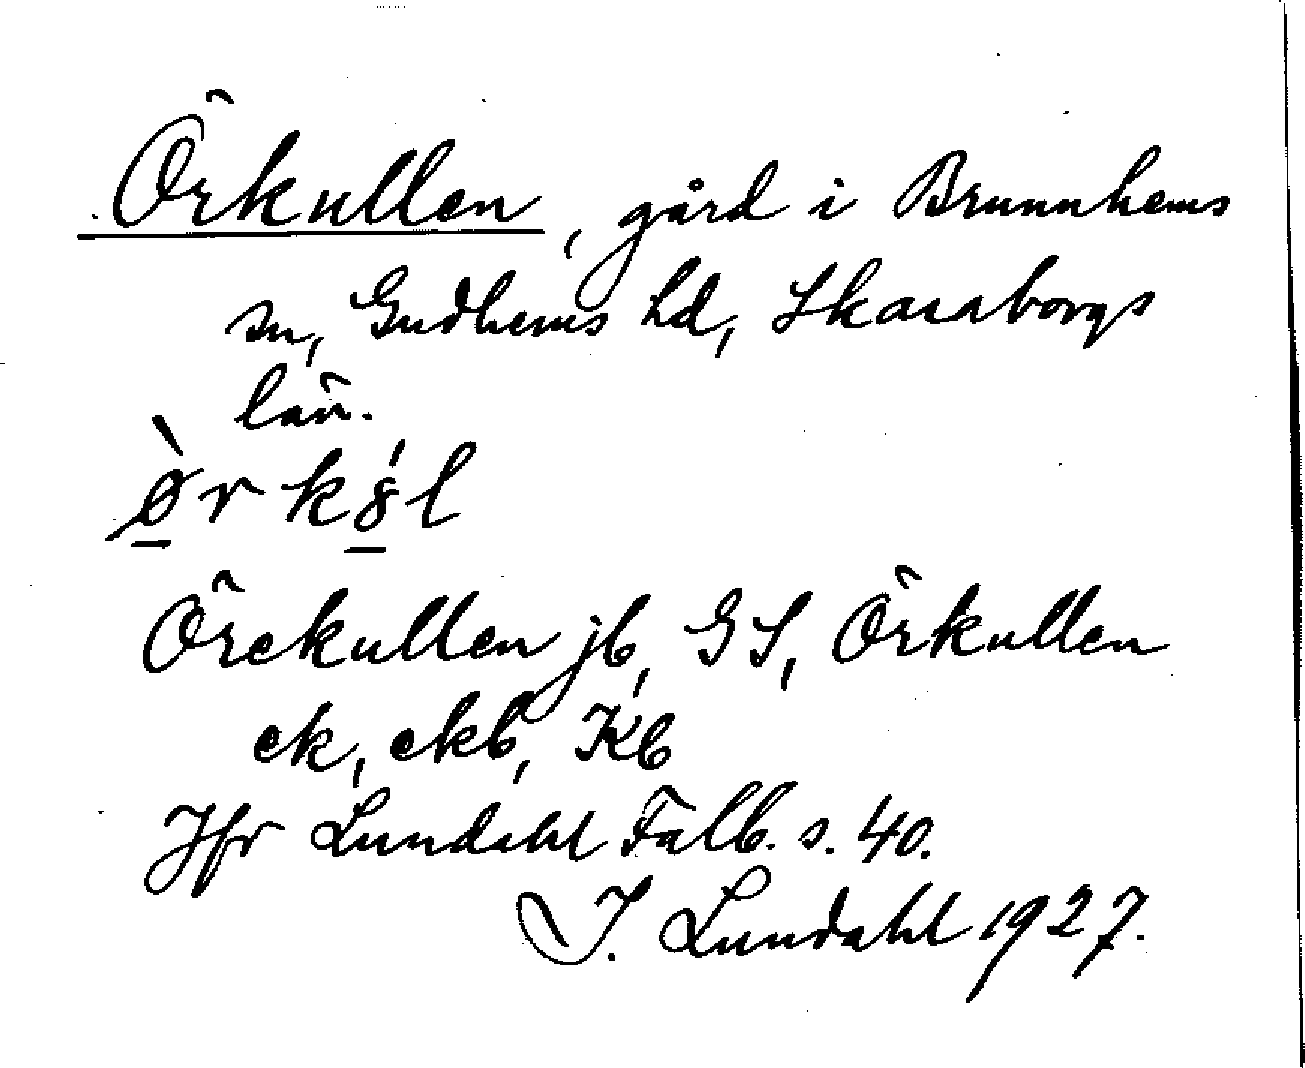 Örkullen, gård i Brunnhems
sn, Gudhems hd, Skaraborgs
län.
ø̱̀rk8̱́l
Örekullen jb, GS, Örkullen
ek, ekb, Kb
Jfr Lundahl Falb. s. 40.
I. Lundahl 1927.